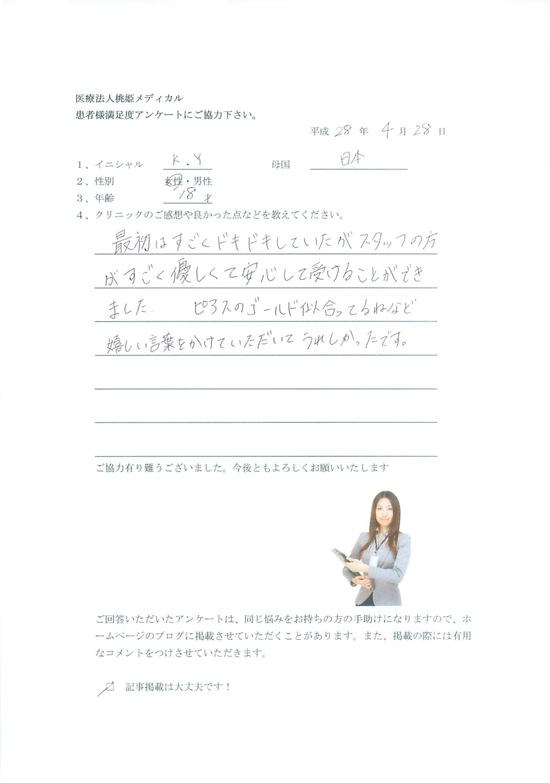 医療法人桃姫メディカル
患者様満足度アンケートにご協力下さい。
平成 28 年 4 月 28 日
1、イニシャル K.Y 母国 日本
2、性別 女性・男性
3、年齢 18 才
4、クリニックのご感想や良かった点などを教えてください。
最初はすごくドキドキしていたがスタッフの方
がすごく優しくて安心して受けることができ
ました。 ピアスのゴールド似合ってるねなど
嬉しい言葉をかけていただいてうれしかったです。
ご協力有り難うございました。今後ともよろしくお願いいたします
ご回答いただいたアンケートは、同じ悩みをお持ちの方の手助けになりますので、ホ
ームページのブログに掲載させていただくことがあります。また、掲載の際には有用
なコメントをつけさせていただきます。
記事掲載は大丈夫です！